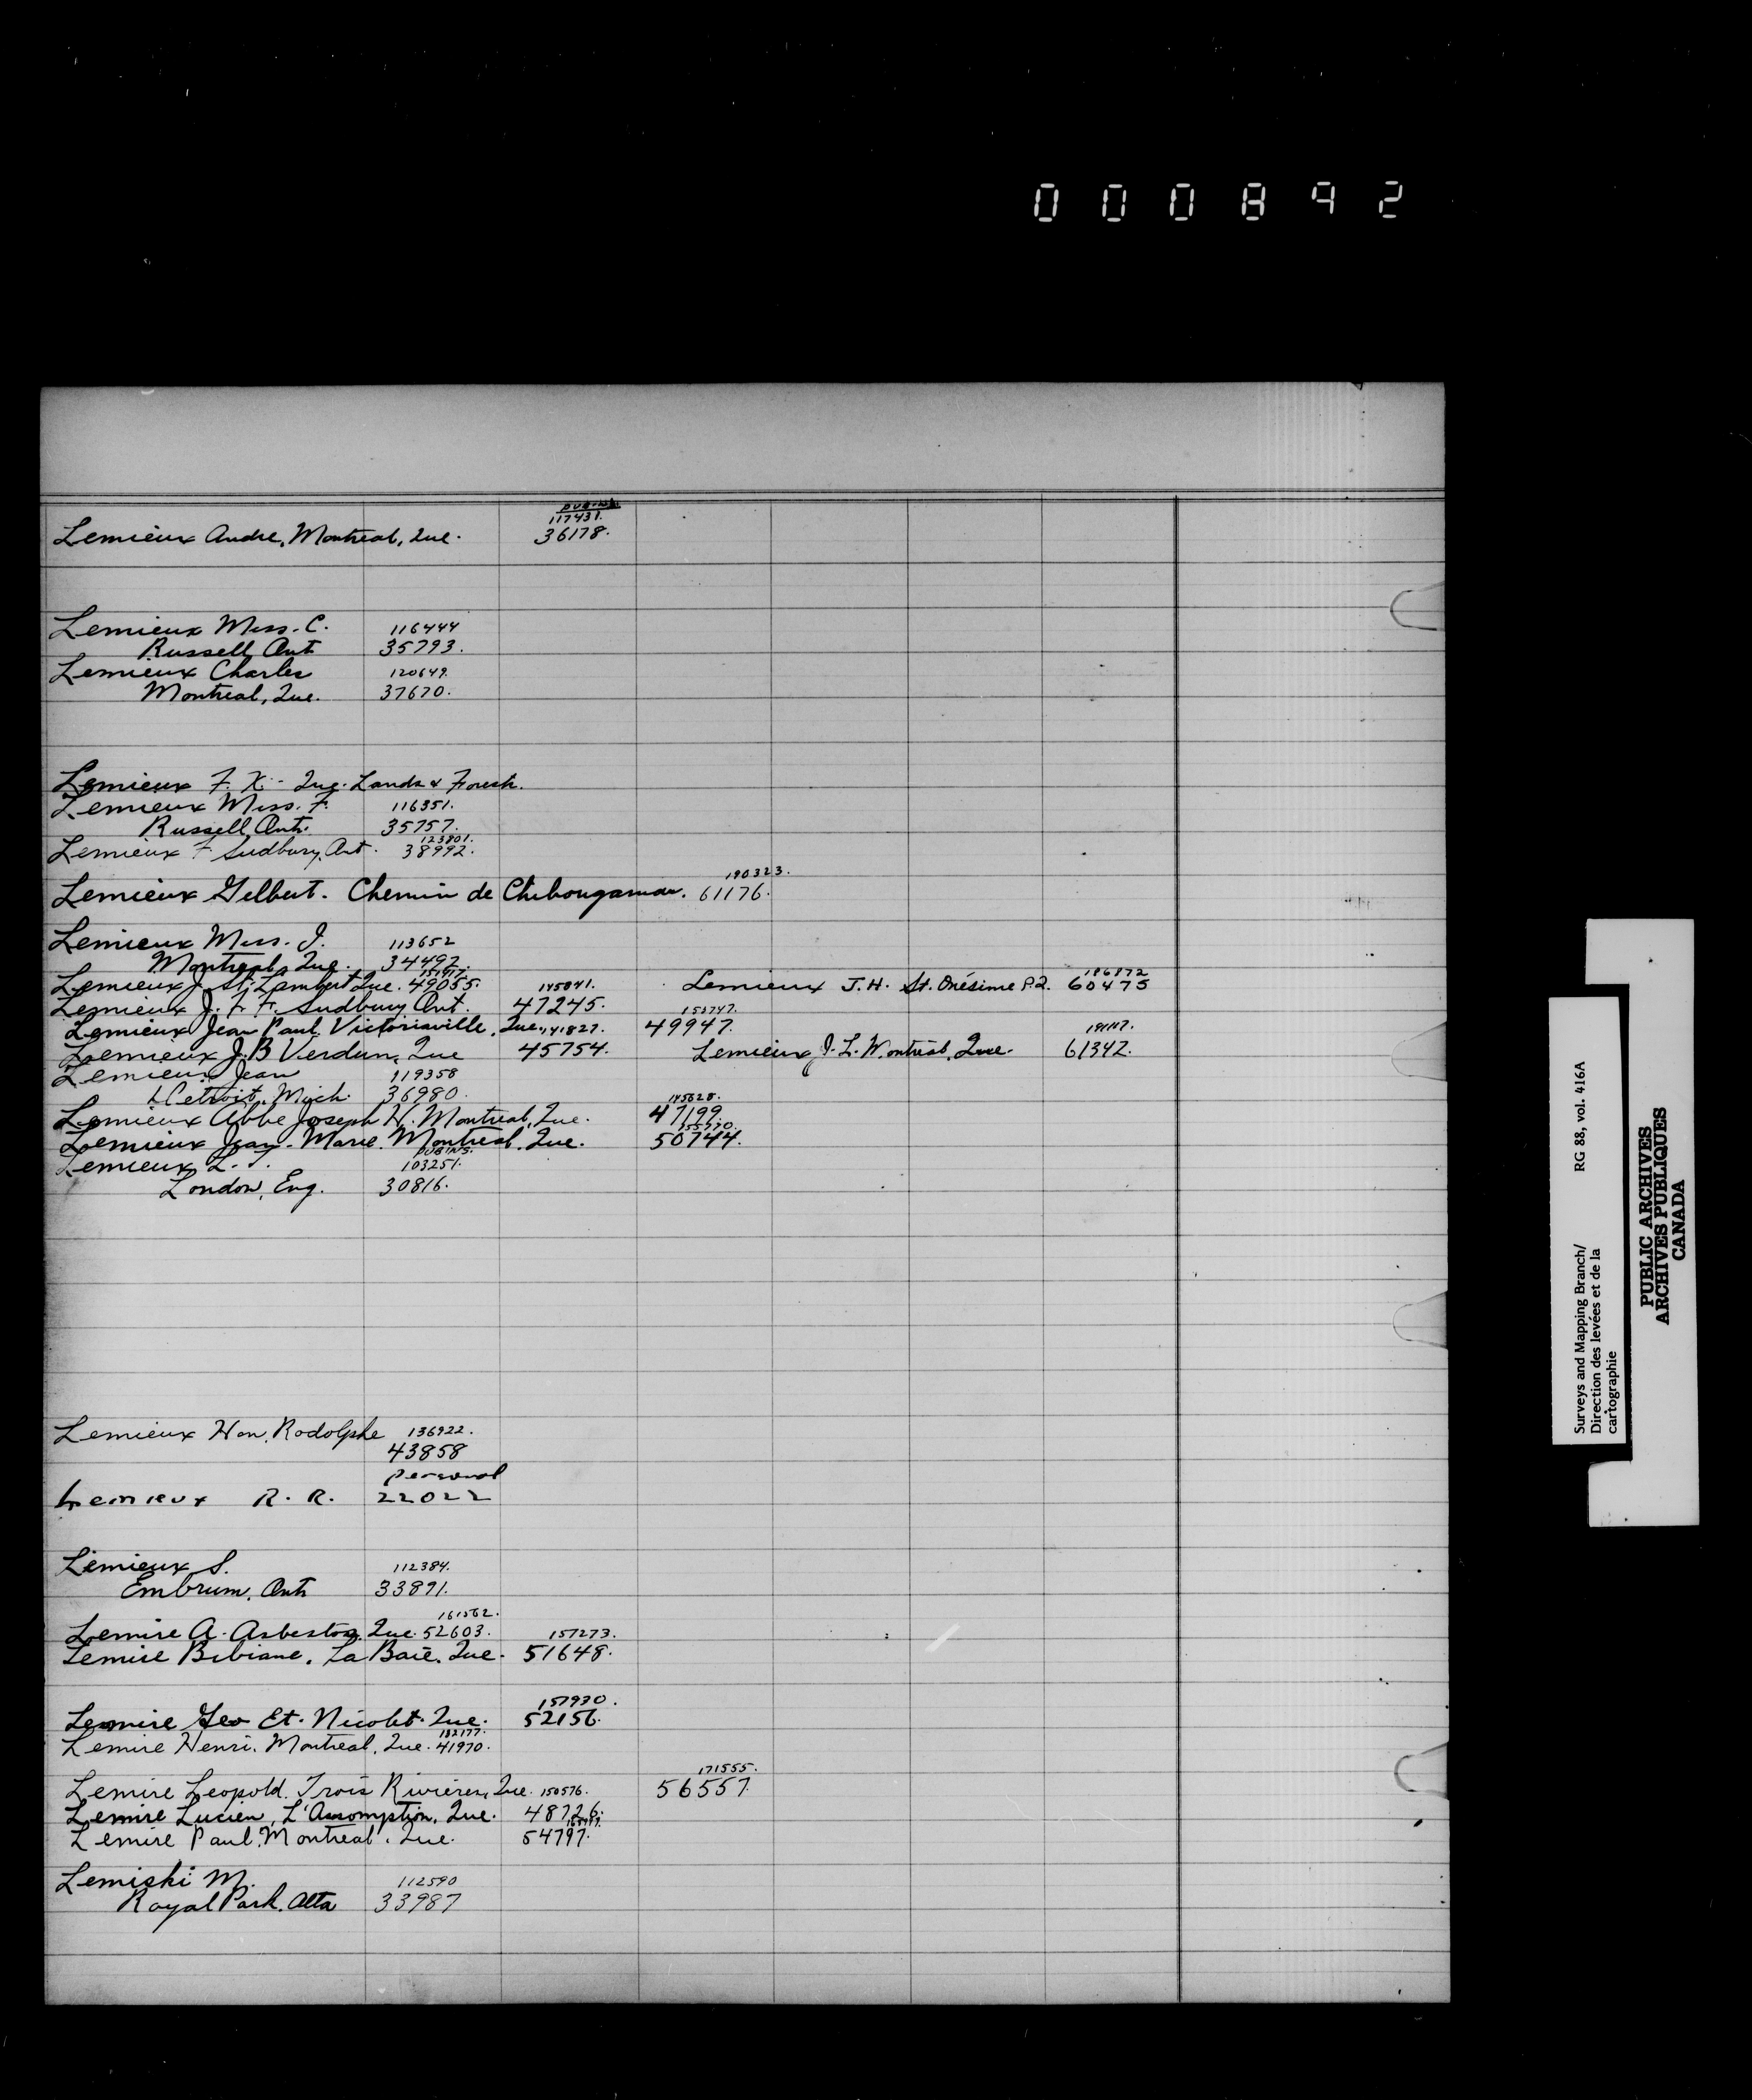 000892
PUB. INS.
117431.
Lemieux Andre, Montreal, Que. 36178.
Lemieux Miss. C. 116444
Russell, Ont 35793.
Lemieux Charles 120649.
Montreal, Que. 37670.
Lemieux F. X. - Que. Lands & Forests.
Lemieux Miss. F. 116351.
Russell, Ont. 35757.
123801.
Lemieux F Sudbury, Ont. 38992.
190323.
Lemieux Gilbert. Chemin de Chibougamau. 61176.
Lemieux Miss. J. 113652
Montreal, Que. 34492.
Lemieux J. St. Lambert Que. 49055. 145841. Lemieux J. H. St. Onésime P.Q. 60475
186872
Lemieux J. F. F. Sudbury Ont. 47245. 153747.
Lemieux Jean Paul. Victoriaville, Que. 141827. 49947.
Lemieux J. B Verdun, Que 45754. Lemieux J. L. Montréal, Que. 61342.
Lemieux Jean 119358
Detroit, Mich. 36980. 145628.
Lemieux Abbe Joseph H. Montreal, Que. 47199.
155770.
Lemieux Jean-Marie. Montreal. Que. 50744.
PUB INS.
Lemieux L. J. 103251.
London, Eng. 30816.
Lemieux Hon. Rodolphe 136922.
43858
personal
Lemieux R. R. 22022
Lemieux S. 112384.
Embrum, Ont 33891.
161562.
Lemire A. Asbestos, Que. 52603. 157273.
Lemire Bibiane, La Baie, Que. 51648.
157930.
Lemire Geo Et. Nicolet. Que. 52156.
132177.
Lemire Henri. Montreal, Que. 41970.
171555.
Lemire Leopold. Trois Rivieres, Que. 150576. 56557.
Lemire Lucien, L'Assomption, Que. 48726.
Lemire Paul. Montreal, Que. 54797.
Lemiski M. 112590
Royal Park. Alta 33987
Surveys and Mapping Branch/ RG 88, vol. 416A
Direction des levées et de la
cartographie
PUBLIC ARCHIVES
ARCHIVES PUBLIQUES
CANADA